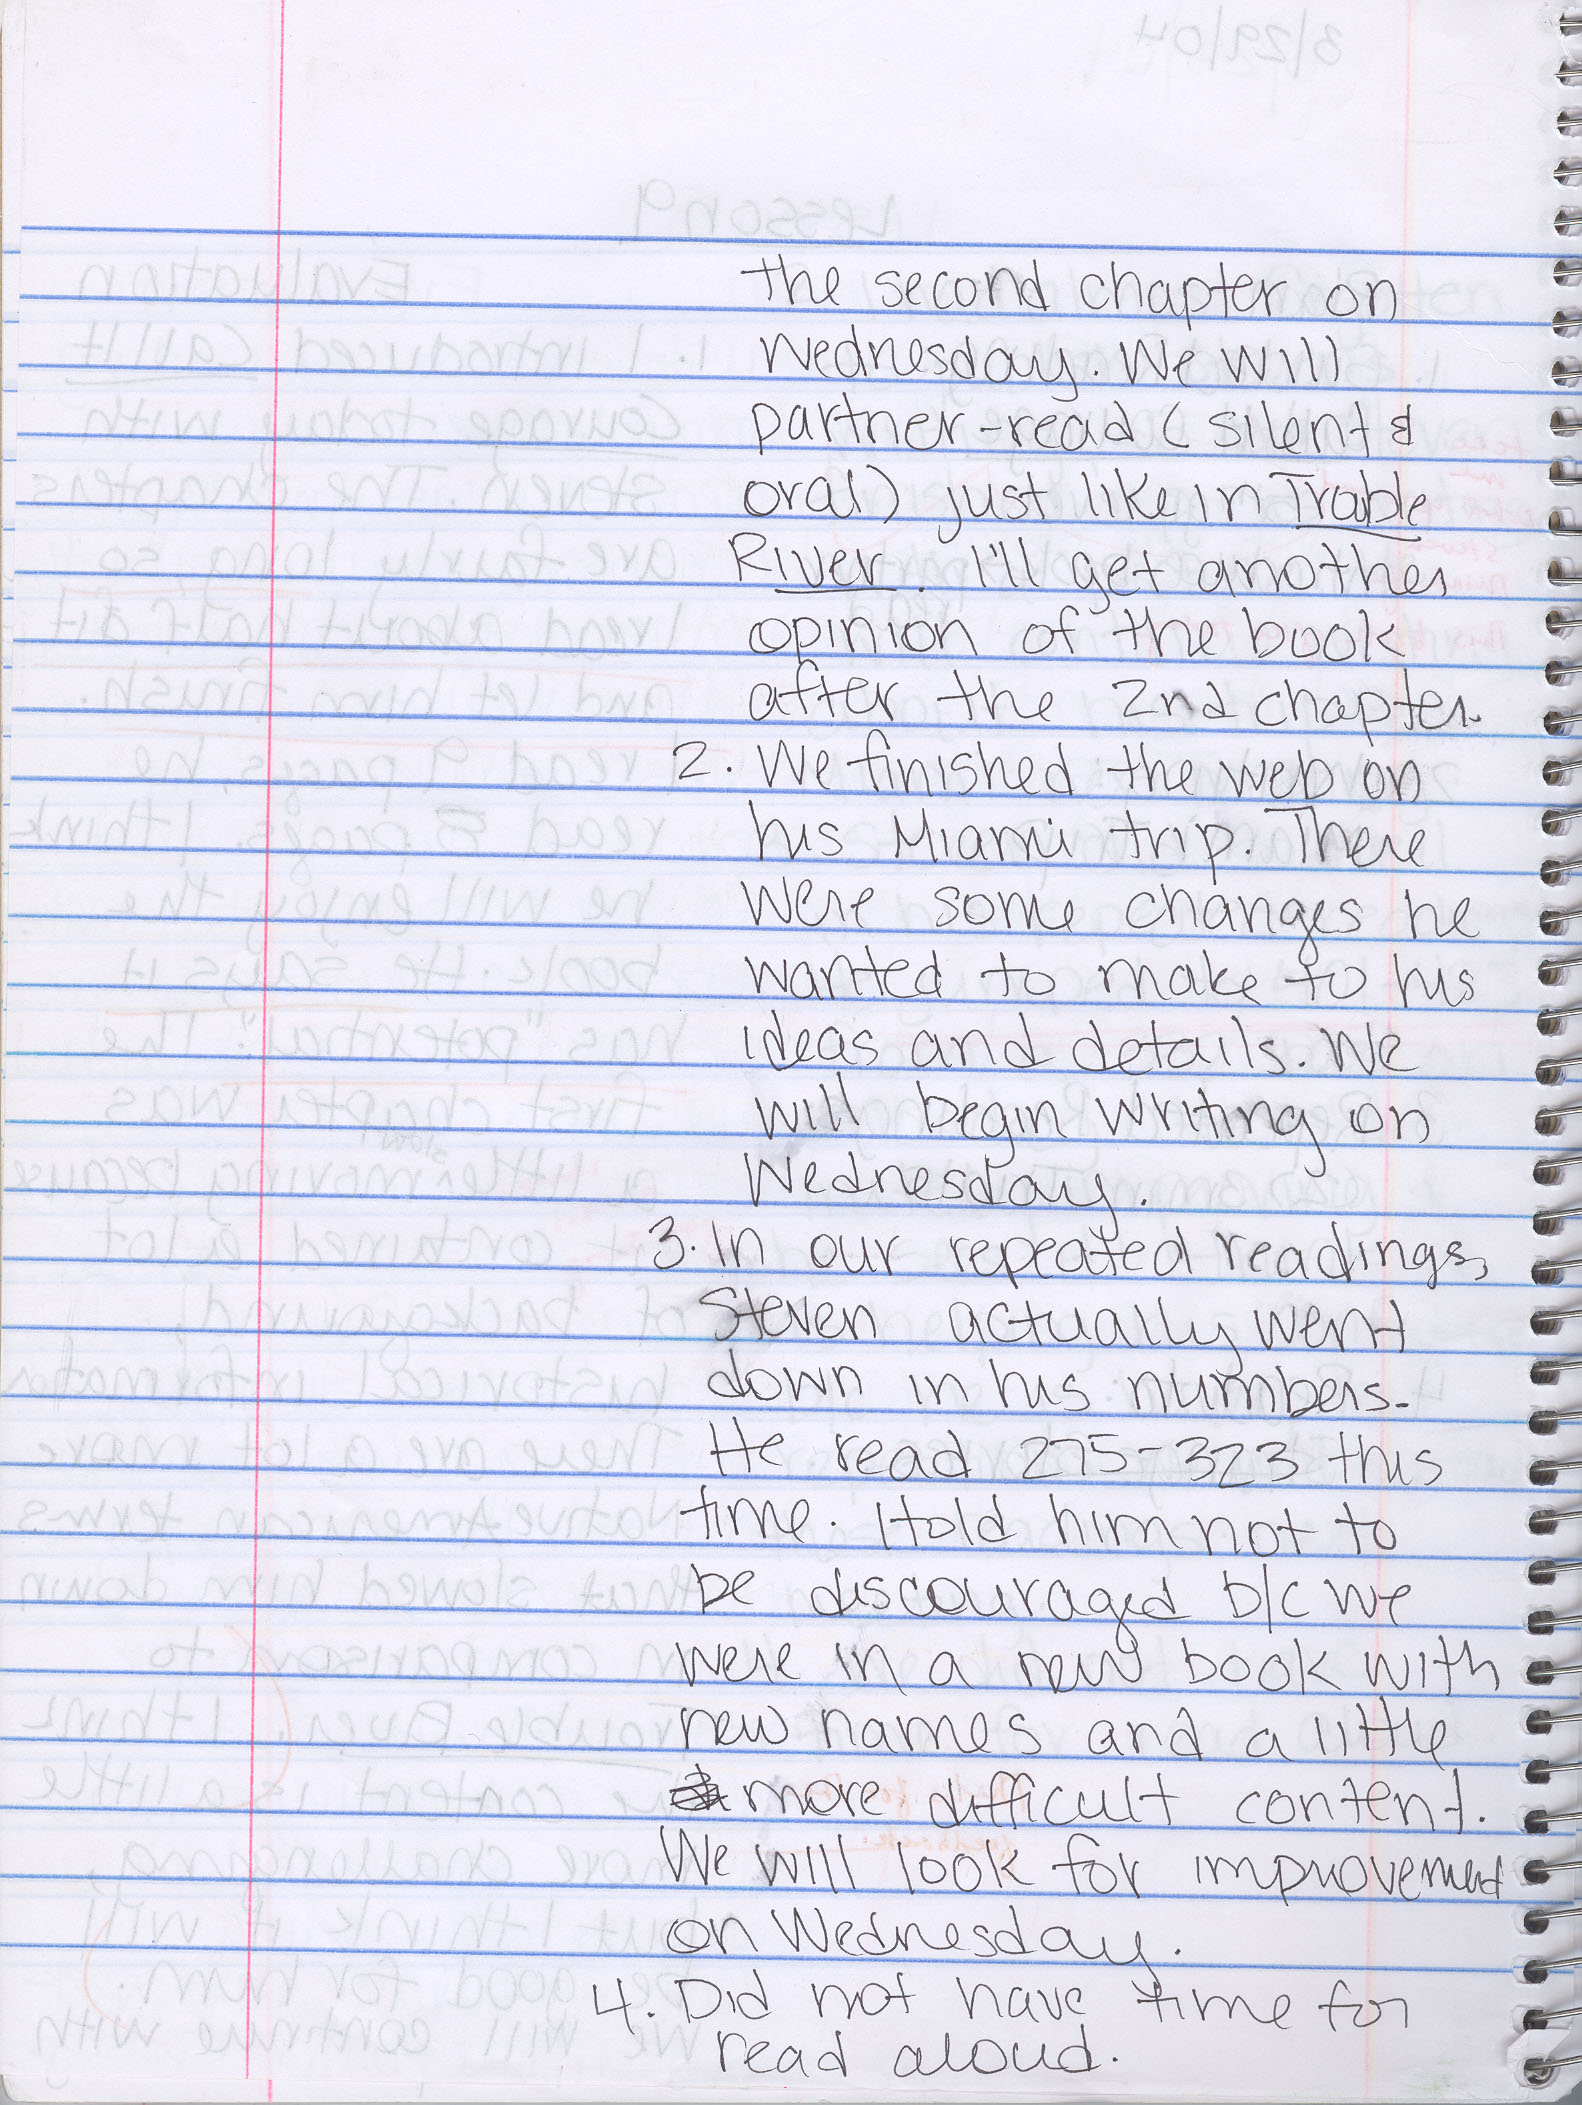 the second chapter on
Wednesday. We will
partner-read (silent &
oral) just like in Trouble
River. I'll get another
opinion of the book
after the 2nd chapter.
2. We finished the web on
his Miami trip. There
were some changes he
wanted to make to his
ideas and details. We
will begin writing on
Wednesday.
3. In our repeated readings,
Steven actually went
down in his numbers.
He read 275-323 this
time. I told him not to
be discouraged b/c we
were in a new book with
new names and a little
more difficult content.
We will look for improvement
on Wednesday.
4. Did not have time for
read aloud.